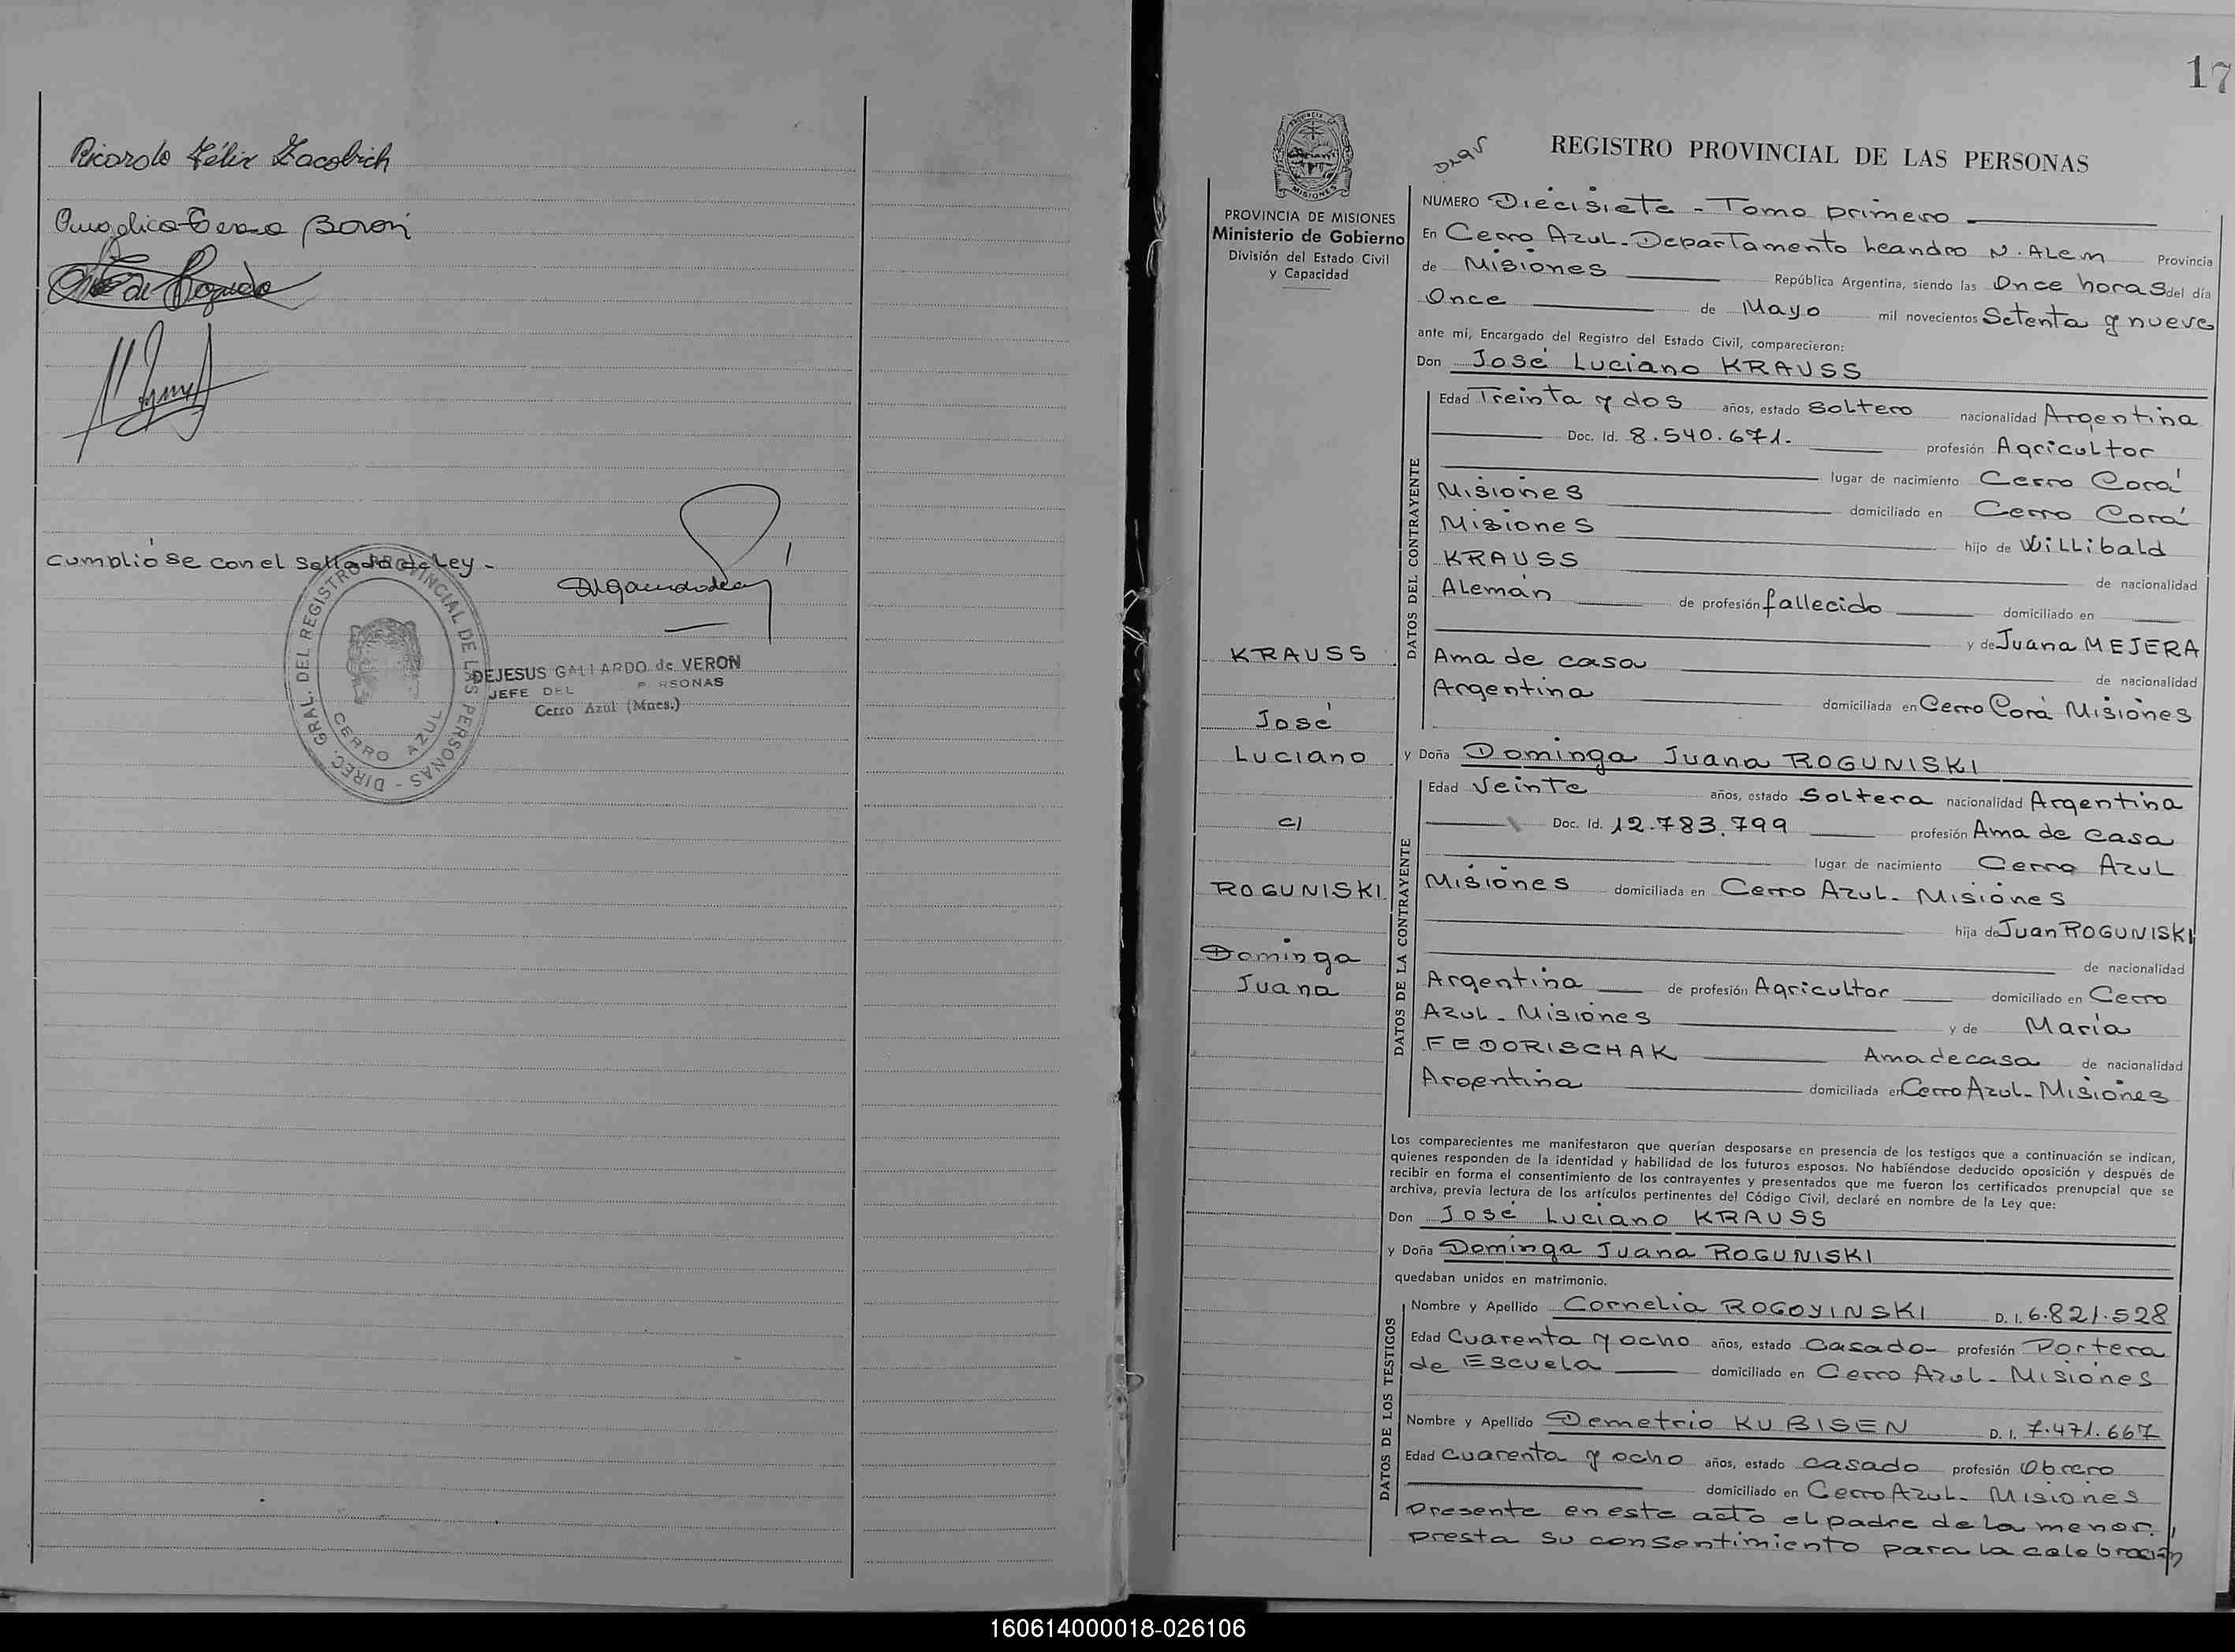 Ricardo Félix Zacobich
Angélica Teresa Boron
Cumplióse con el Sellado de Ley -
DIREC. GRAL. DEL REGISTRO PROVINCIAL DE LAS PERSONAS -
CERRO AZUL
DEJESUS GALLARDO de VERON
JEFE DEL PERSONAS
Cerro Azul (Mnes.)
17
REGISTRO PROVINCIAL DE LAS PERSONAS
PROVINCIA DE MISIONES
Ministerio de Gobierno
División del Estado Civil
y Capacidad
NUMERO Diecisiete - Tomo primero
En Cerro Azul - Departamento Leandro N. Alem Provincia
de Misiones República Argentina, siendo las Once horas del día
Once de Mayo mil novecientos Setenta y nueve
ante mi, Encargado del Registro del Estado Civil, comparecieron:
Don José Luciano KRAUSS
DATOS DEL CONTRAYENTE
Edad Treinta y dos años, estado Soltero nacionalidad Argentina
Doc. Id. 8.540.671. profesión Agricultor
lugar de nacimiento Cerro Corá
Misiones domiciliado en Cerro Corá
Misiones hijo de Willibald
KRAUSS de nacionalidad
Alemán de profesión fallecido domiciliado en
y de Juana MEJERA
Ama de casa de nacionalidad
Argentina domiciliada en Cerro Corá Misiones
KRAUSS
José
Luciano
c/
ROGUNISKI
Dominga
Juana
y Doña Dominga Juana ROGUNISKI
DATOS DE LA CONTRAYENTE
Edad Veinte años, estado Soltera nacionalidad Argentina
Doc. Id. 12.783.799 profesión Ama de Casa
lugar de nacimiento Cerro Azul
Misiones domiciliada en Cerro Azul - Misiones
hija de Juan ROGUNISKI
de nacionalidad
Argentina de profesión Agricultor domiciliado en Cerro
Azul - Misiones y de María
FEDORISCHAK Ama de casa de nacionalidad
Argentina domiciliada en Cerro Azul - Misiones
Los comparecientes me manifestaron que querían desposarse en presencia de los testigos que a continuación se indican,
quienes responden de la identidad y habilidad de los futuros esposos. No habiéndose deducido oposición y después de
recibir en forma el consentimiento de los contrayentes y presentados que me fueron los certificados prenupcial que se
archiva, previa lectura de los artículos pertinentes del Código Civil, declaré en nombre de la Ley que:
Don José Luciano KRAUSS
y Doña Dominga Juana ROGUNISKI
quedaban unidos en matrimonio.
DATOS DE LOS TESTIGOS
Nombre y Apellido Cornelia ROGOYINSKI D. I. 6.821.528
Edad Cuarenta y ocho años, estado Casado - profesión Portera
de Escuela domiciliado en Cerro Azul - Misiones
Nombre y Apellido Demetrio KUBISEN D. I. 7.471.667
Edad Cuarenta y ocho años, estado casado profesión Obrero
domiciliado en Cerro Azul - Misiones
Presente en este acto el padre de la menor,
presta su consentimiento para la celebración
160614000018-026106